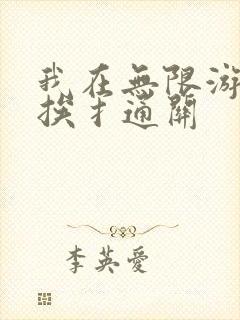 我在無限游
挨扌通關
李英愛